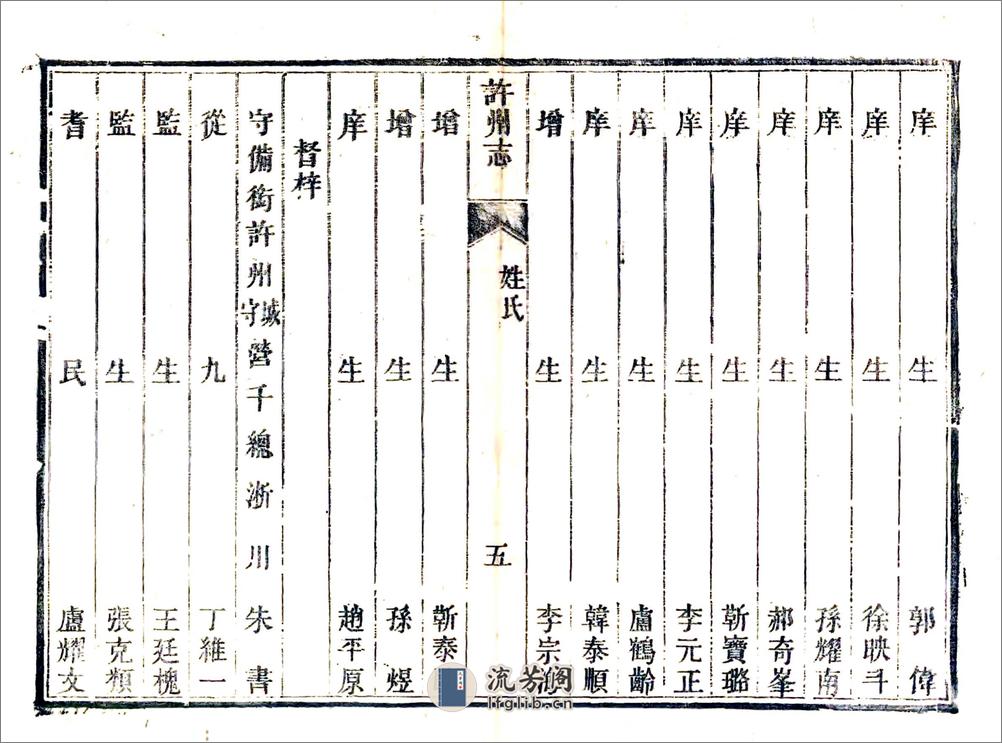 庠生郭偉
庠生徐映斗
庠生孫耀南
庠生郝奇峯
庠生靳寶璐
庠生李元正
庠生盧鶴齡
庠生韓泰順
增生李宗
許州志 姓氏 五
增生靳泰
增生孫煜
庠生趙平原
督梓
守備銜許州城守營千總淅川朱書
從九丁維一
監生王廷槐
監生張克類
耆民盧耀文
流芳阁
lfglib.cn